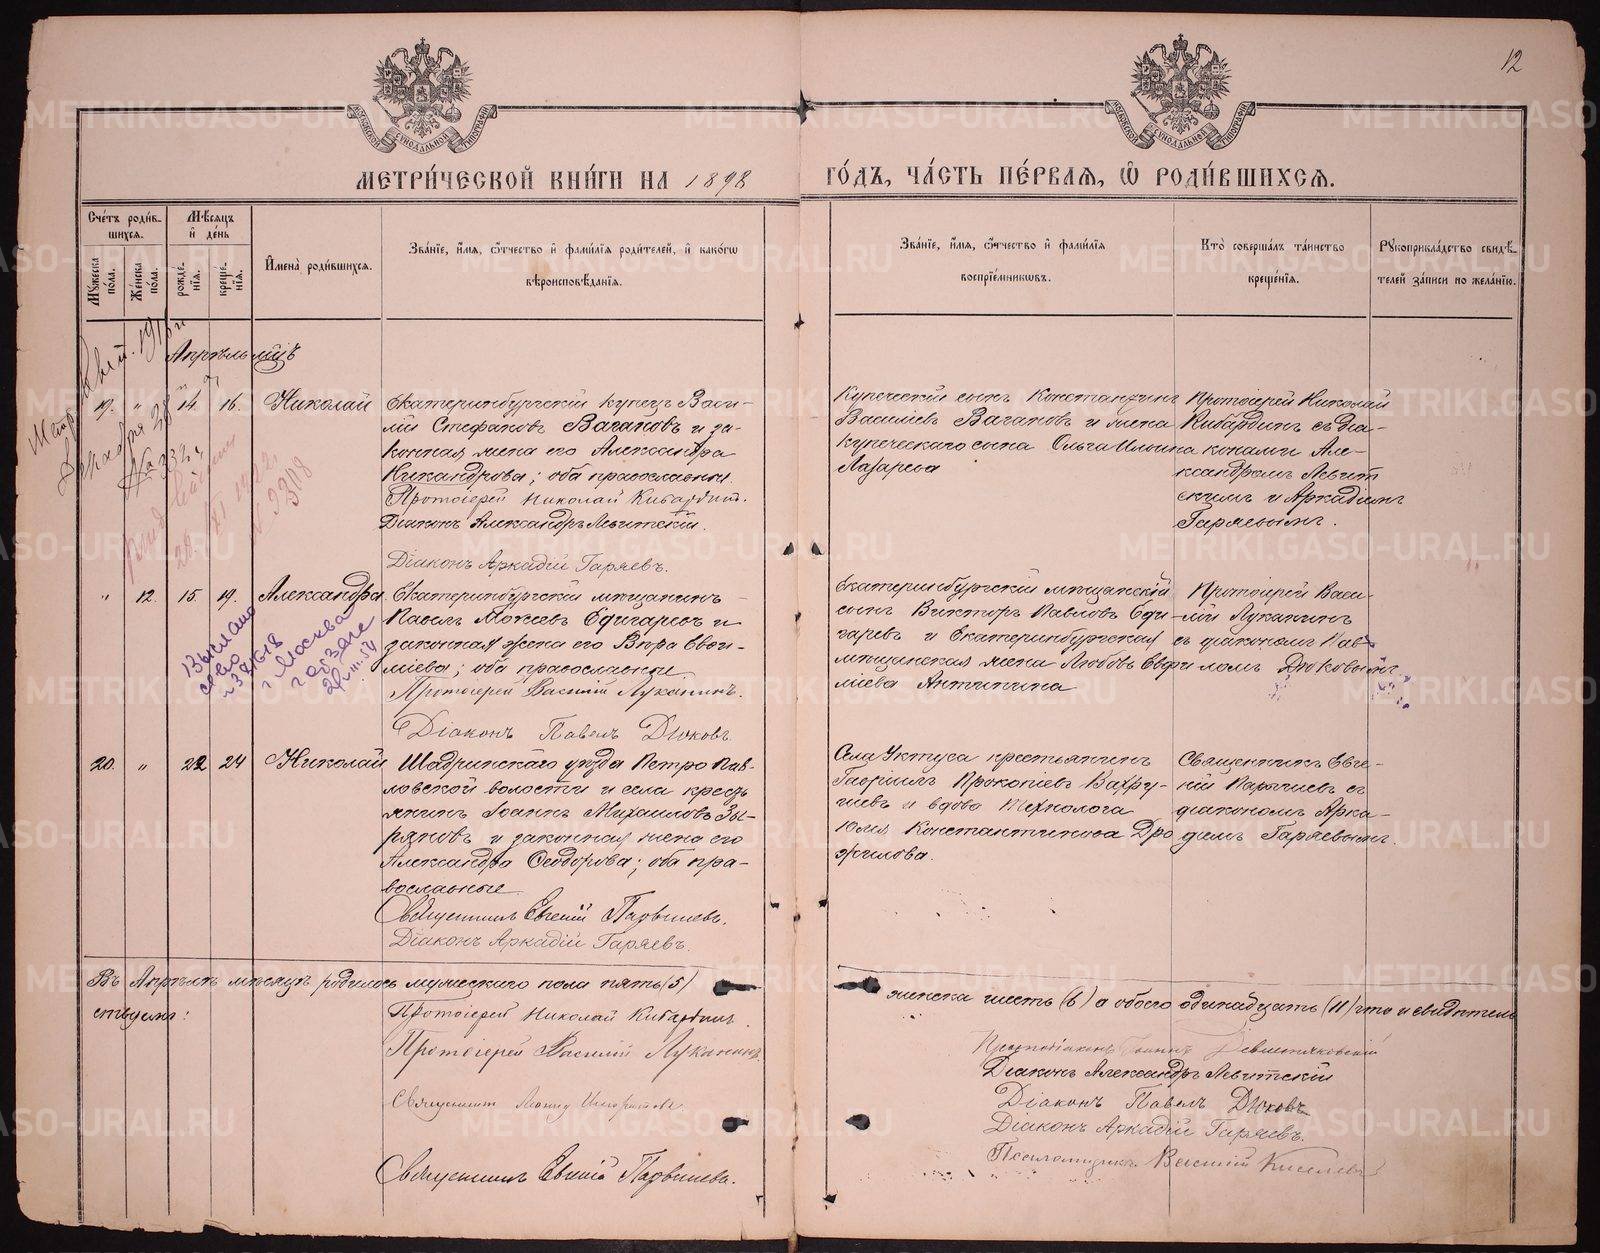 12
МОСКОВСКОЙ СѴНОДАЛЬНОЙ ТИПОГРАФІИ
МОСКОВСКОЙ СѴНОДАЛЬНОЙ ТИПОГРАФІИ
МЕТРИ́ЧЕСКОЙ КНИ́ГИ НА 1898
ГО́ДЪ, ЧА́СТЬ ПЕ́РВАЯ, Ѡ РОДИ́ВШИХСЯ.
Сче́тъ роди́в-
шихся.
Мꙋжеска
по́ла.
Же́нска
по́ла.
Мѣсяцъ
и́ де́нь
рожде-
нія.
креще-
нія.
И̓мена̀ роди́вшихся.
Зва́ніе, и́мя, ѻ́тчество и҆ фами́лія роди́телей, и҆ како́гѡ
вѣроисповѣ́данія.
Зва́ніе, и́мя, ѻ́тчество и҆ фами́лія
воспріе́мниковъ.
Кто̀ соверша́лъ та́инство
креще́нія.
Рꙋкоприкла́дство свидѣ́-
телей за́писи по жела́нію.
Апрѣль мцъ
19. " 14. 16. Николай
Екатеринбургскій купецъ Васи-
лій Стефановъ Вагановъ и за-
конная жена его Александра
Никандрова; оба православные.
Протоіерей Николай Кибардинъ.
Діаконъ Александръ Левитскій.
Діаконъ Аркадій Гаряевъ.
Купеческій сынъ Константинъ
Василіевъ Вагановъ и жена
купеческаго сына Ольга Ильина
Лазарева
Протоіерей Николай
Кибардинъ съ діа-
конами Але-
ксандромъ Левит
скимъ и Аркадіемъ
Гаряевымъ.
" 12. 15. 19. Александра
Екатеринбургскій мѣщанинъ
Павелъ Моѵсеевъ Едигаревъ и
законная жена его Вѣра Евѳи-
міева; оба православные.
Протоіерей Василій Луканинъ.
Діаконъ Павелъ Дюковъ.
Екатеринбургскій мѣщанскій
сынъ Викторъ Павловъ Еди-
гаревъ и Екатеринбургская
мѣщанская жена Любовь Евѳи
міева Антипина
Протоіерей Васи-
лій Луканинъ
съ діакономъ Пав
ломъ Дюковымъ
20. " 22 24 Николай
Шадринскаго уѣзда Петро Пав-
ловской волости и села кресть
янинъ Іоаннъ Михаиловъ Зы-
ряновъ и законная жена его
Александра Ѳеодорова; оба пра-
вославные.
Священникъ Евгеній
Діаконъ Аркадій Гаряевъ.
Села Уктуса крестьянинъ
Гавріилъ Прокопіевъ Вахру-
шевъ и вдова технолога
Юлія Константинова Дро
жилова.
Священникъ Евге-
ній съ
діакономъ Арка-
діемъ Гаряевымъ.
Выслано
г Москва
Въ Апрѣлѣ мѣсяцѣ родилось мужескаго пола пять (5)
женска шесть (6) а обоего одинадцать (11) что и свидѣтель
ствуемъ:
Протоіерей Николай Кибардинъ.
Протоіерей Василій Луканинъ.
Священникъ
Священникъ Евгеній
Протодіаконъ Іоаннъ
Діаконъ Александръ Левитскій
Діаконъ Павелъ Дюковъ
Діаконъ Аркадій Гаряевъ.
Псаломщикъ Василій Киселевъ
METRIKI.GASO-URAL.RU